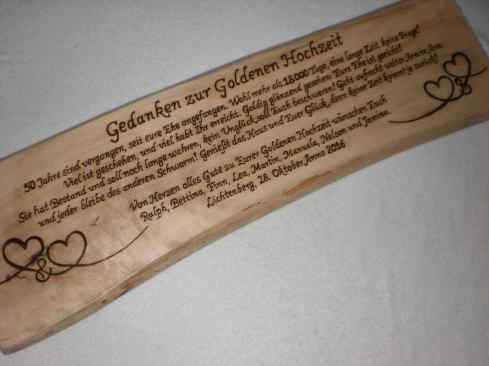 Gedanken zur Goldenen Hochzeit
50 Jahre sind vergangen, seit eure Ehe angefangen. Wohl mehr als 18.000 Tage, eine lange Zeit, keine Frage!
Viel ist geschehen, und viel habt Ihr erreicht. Goldig glänzend gesehen: Eure Ehe ist geeicht!
Sie hat Bestand und soll noch lange währen, kein Unglück soll Euch beschweren! Geht aufrecht weiter Arm in Arm
und jeder bleibe des anderen Schwarm! Genießt das Haus und Euer Glück, denn keine Zeit kommt je zurück!
Von Herzen alles Gute zu Eurer Goldenen Hochzeit wünschen Euch
Ralph, Bettina, Finn, Lea, Martin, Manuela, Nelson und Jamina
Lichtenberg, 28. Oktober Anno 2016
&
&